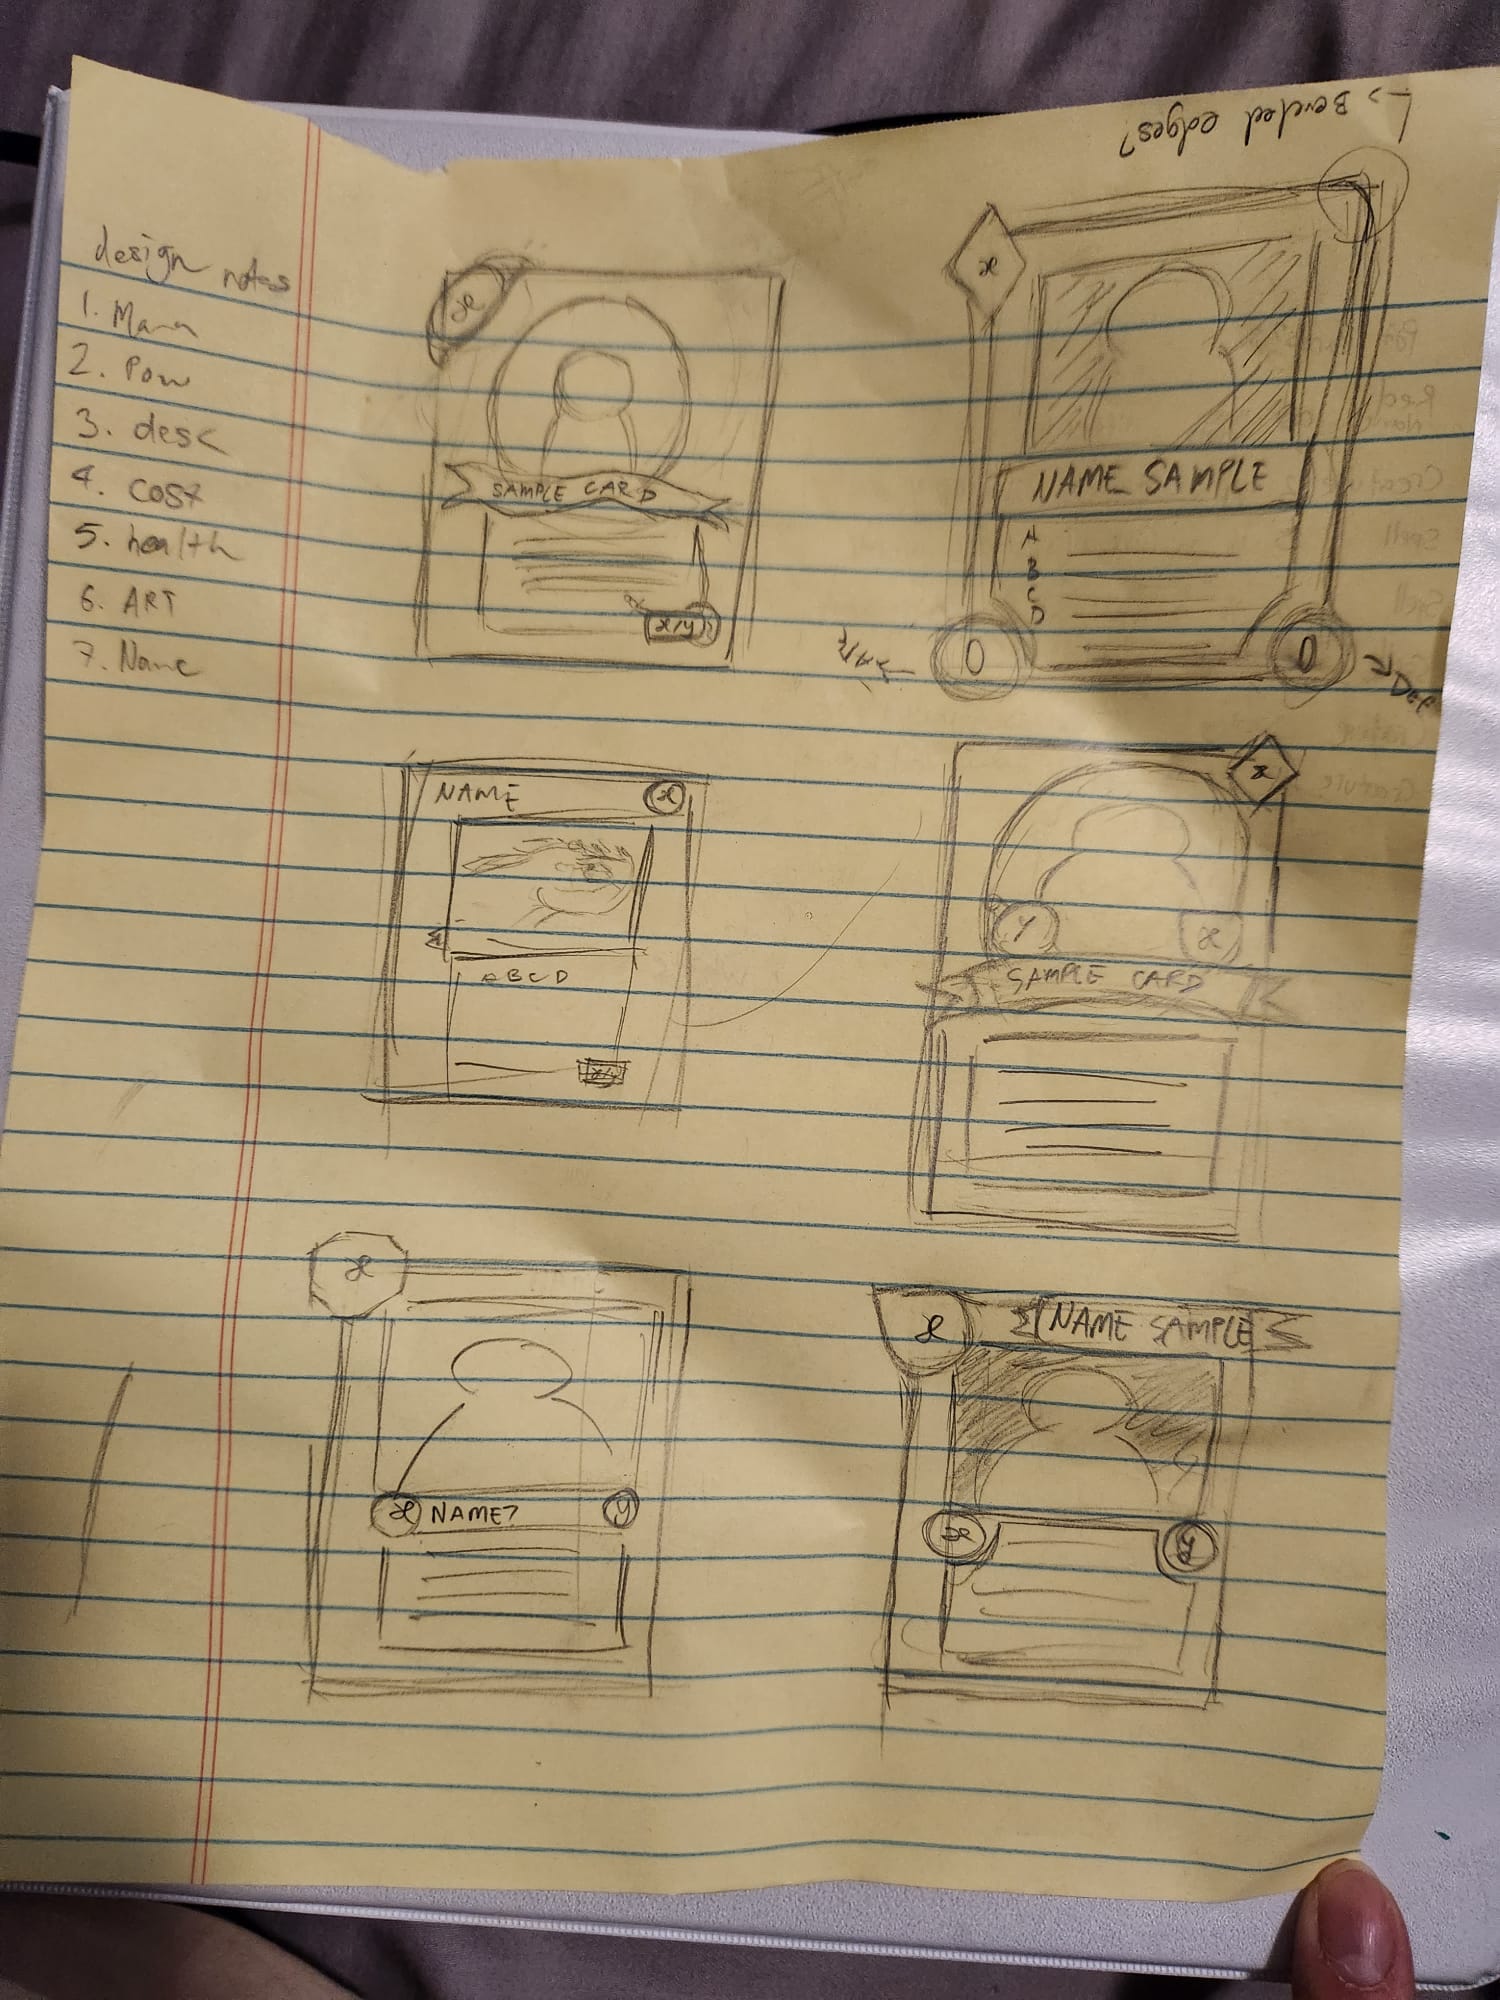 Beveled edges?
design notes
1. Mana
2. Pow
3. desc
4. cost
5. health
6. ART
7. Name
x
SAMPLE CARD
x/y
x
NAME SAMPLE
A
B
C
D
0
0
Def
NAME
x
ABCD
x
y
x
SAMPLE CARD
x
x
NAME?
y
x
NAME SAMPLE
x
y